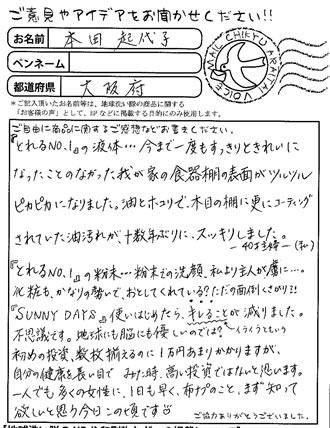 ご意見やアイデアをお聞かせください!!
お名前 本田起代子
ペンネーム
都道府県 大阪府
MAIL CHIKYU ARAITAI VOICE
*ご記入頂いたお名前等は、地球洗い隊の商品に関する
「お客様の声」として、HPなどに掲載する目的にのみ使用します。
ご自由に商品に関するご感想などお書きください。
『とれるNO.1』の液体…今まで一度もすっきりときれいに
なったことのなかった我が家の食器棚の表面がツルツル
ピカピカになりました。油とホコリで、木目の棚に更にコーティング
されていた油汚れが、十数年ぶりに、スッキリしました。
『とれるNO.1』の粉末…粉末での洗顔、私より主人が虜に…。
化粧も、かなりの勢いで、おとしてくれている?!ただの面倒くさがり!!
『SUNNY DAYS』使いはじめたら、キレることが減りました。
不思議です。地球にも脳にも優しいのでは?
初めの投資、数枚揃えるのに1万円あまりかかりますが、
自分の健康を長い目でみた時、高い投資ではないと思います。
一人でも多くの女性に、1日も早く、布ナプのこと、まず知って
欲しいと思う今日この頃です
ご協力ありがとうございました。